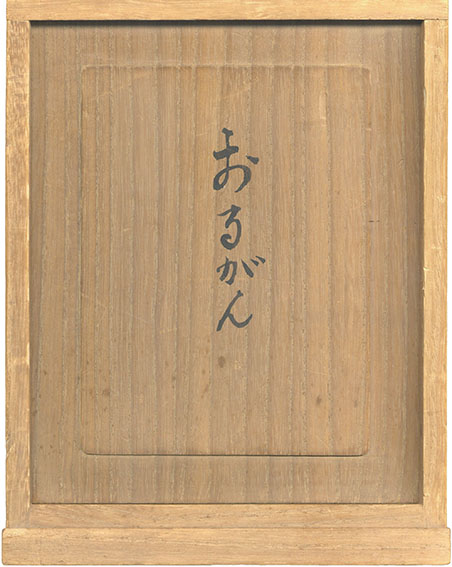 おるがん